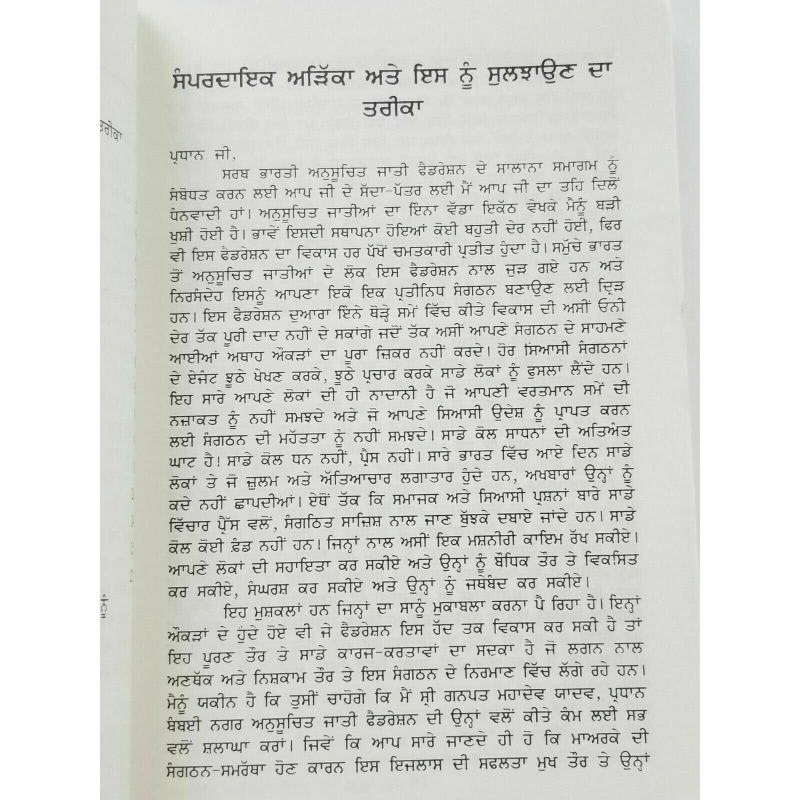 ਸੰਪਰਦਾਇਕ ਅੜਿੱਕਾ ਅਤੇ ਇਸ ਨੂੰ ਸੁਲਝਾਉਣ ਦਾ
ਤਰੀਕਾ
ਪ੍ਰਧਾਨ ਜੀ,
ਸਰਬ ਭਾਰਤੀ ਅਨੁਸੂਚਿਤ ਜਾਤੀ ਫੈਡਰੇਸ਼ਨ ਦੇ ਸਾਲਾਨਾ ਸਮਾਗਮ ਨੂੰ
ਸੰਬੋਧਤ ਕਰਨ ਲਈ ਆਪ ਜੀ ਦੇ ਸੱਦਾ-ਪੱਤਰ ਲਈ ਮੈਂ ਆਪ ਜੀ ਦਾ ਤਹਿ ਦਿਲੋਂ
ਧੰਨਵਾਦੀ ਹਾਂ। ਅਨੁਸੂਚਿਤ ਜਾਤੀਆਂ ਦਾ ਇੰਨਾ ਵੱਡਾ ਇਕੱਠ ਵੇਖਕੇ ਮੈਨੂੰ ਬੜੀ
ਖੁਸ਼ੀ ਹੋਈ ਹੈ। ਭਾਵੇਂ ਇਸਦੀ ਸਥਾਪਨਾ ਹੋਇਆਂ ਕੋਈ ਬਹੁਤੀ ਦੇਰ ਨਹੀਂ ਹੋਈ, ਫਿਰ
ਵੀ ਇਸ ਫੈਡਰੇਸ਼ਨ ਦਾ ਵਿਕਾਸ ਹਰ ਪੱਖੋਂ ਚਮਤਕਾਰੀ ਪ੍ਰਤੀਤ ਹੁੰਦਾ ਹੈ। ਸਮੁੱਚੇ ਭਾਰਤ
ਤੋਂ ਅਨੁਸੂਚਿਤ ਜਾਤੀਆਂ ਦੇ ਲੋਕ ਇਸ ਫੈਡਰੇਸ਼ਨ ਨਾਲ ਜੁੜ ਗਏ ਹਨ ਅਤੇ
ਨਿਰਸੰਦੇਹ ਇਸਨੂੰ ਆਪਣਾ ਇਕੋ ਇਕ ਪ੍ਰਤੀਨਿਧ ਸੰਗਠਨ ਬਣਾਉਣ ਲਈ ਦ੍ਰਿੜ
ਹਨ। ਇਸ ਫੈਡਰੇਸ਼ਨ ਦੁਆਰਾ ਇੰਨੇ ਥੋੜ੍ਹੇ ਸਮੇਂ ਵਿੱਚ ਕੀਤੇ ਵਿਕਾਸ ਦੀ ਅਸੀਂ ਓਨੀ
ਦੇਰ ਤੱਕ ਪੂਰੀ ਦਾਦ ਨਹੀਂ ਦੇ ਸਕਾਂਗੇ ਜਦੋਂ ਤੱਕ ਅਸੀਂ ਆਪਣੇ ਸੰਗਠਨ ਦੇ ਸਾਹਮਣੇ
ਆਈਆਂ ਅਥਾਹ ਔਕੜਾਂ ਦਾ ਪੂਰਾ ਜ਼ਿਕਰ ਨਹੀਂ ਕਰਦੇ। ਹੋਰ ਸਿਆਸੀ ਸੰਗਠਨਾਂ
ਦੇ ਏਜੰਟ ਝੂਠੇ ਖੇਖਣ ਕਰਕੇ, ਝੂਠੇ ਪ੍ਰਚਾਰ ਕਰਕੇ ਸਾਡੇ ਲੋਕਾਂ ਨੂੰ ਫੁਸਲਾ ਲੈਂਦੇ ਹਨ।
ਇਹ ਸਾਰੇ ਆਪਣੇ ਲੋਕਾਂ ਦੀ ਹੀ ਨਾਦਾਨੀ ਹੈ ਜੋ ਆਪਣੀ ਵਰਤਮਾਨ ਸਮੇਂ ਦੀ
ਨਜ਼ਾਕਤ ਨੂੰ ਨਹੀਂ ਸਮਝਦੇ ਅਤੇ ਜੋ ਆਪਣੇ ਸਿਆਸੀ ਉਦੇਸ਼ ਨੂੰ ਪ੍ਰਾਪਤ ਕਰਨ
ਲਈ ਸੰਗਠਨ ਦੀ ਮਹੱਤਤਾ ਨੂੰ ਨਹੀਂ ਸਮਝਦੇ। ਸਾਡੇ ਕੋਲ ਸਾਧਨਾਂ ਦੀ ਅਤਿਅੰਤ
ਘਾਟ ਹੈ! ਸਾਡੇ ਕੋਲ ਧਨ ਨਹੀਂ, ਪ੍ਰੈਸ ਨਹੀਂ। ਸਾਰੇ ਭਾਰਤ ਵਿੱਚ ਆਏ ਦਿਨ ਸਾਡੇ
ਲੋਕਾਂ ਤੇ ਜੋ ਜ਼ੁਲਮ ਅਤੇ ਅੱਤਿਆਚਾਰ ਲਗਾਤਾਰ ਹੁੰਦੇ ਹਨ, ਅਖਬਾਰਾਂ ਉਨ੍ਹਾਂ ਨੂੰ
ਕਦੇ ਨਹੀਂ ਛਾਪਦੀਆਂ। ਏਥੋਂ ਤੱਕ ਕਿ ਸਮਾਜਕ ਅਤੇ ਸਿਆਸੀ ਪ੍ਰਸ਼ਨਾਂ ਬਾਰੇ ਸਾਡੇ
ਵਿੱਚਾਰ ਪ੍ਰੈੱਸ ਵਲੋਂ, ਸੰਗਠਿਤ ਸਾਜ਼ਿਸ਼ ਨਾਲ ਜਾਣ ਬੁੱਝਕੇ ਦਬਾਏ ਜਾਂਦੇ ਹਨ। ਸਾਡੇ
ਕੋਲ ਕੋਈ ਫ਼ੰਡ ਨਹੀਂ ਹਨ। ਜਿਨ੍ਹਾਂ ਨਾਲ ਅਸੀਂ ਇਕ ਮਸ਼ਨੀਰੀ ਕਾਇਮ ਰੱਖ ਸਕੀਏ।
ਆਪਣੇ ਲੋਕਾਂ ਦੀ ਸਹਾਇਤਾ ਕਰ ਸਕੀਏ ਅਤੇ ਉਨ੍ਹਾਂ ਨੂੰ ਬੌਧਿਕ ਤੌਰ ਤੇ ਵਿਕਸਿਤ
ਕਰ ਸਕੀਏ, ਸੰਘਰਸ਼ ਕਰ ਸਕੀਏ ਅਤੇ ਉਨ੍ਹਾਂ ਨੂੰ ਜਥੇਬੰਦ ਕਰ ਸਕੀਏ।
ਇਹ ਮੁਸ਼ਕਲਾਂ ਹਨ ਜਿਨ੍ਹਾਂ ਦਾ ਸਾਨੂੰ ਮੁਕਾਬਲਾ ਕਰਨਾ ਪੈ ਰਿਹਾ ਹੈ। ਇਨ੍ਹਾਂ
ਔਕੜਾਂ ਦੇ ਹੁੰਦੇ ਹੋਏ ਵੀ ਜੇ ਫੈਡਰੇਸ਼ਨ ਇਸ ਹੱਦ ਤਕ ਵਿਕਾਸ ਕਰ ਸਕੀ ਹੈ ਤਾਂ
ਇਹ ਪੂਰਣ ਤੌਰ ਤੇ ਸਾਡੇ ਕਾਰਜ-ਕਰਤਾਵਾਂ ਦਾ ਸਦਕਾ ਹੈ ਜੋ ਲਗਨ ਨਾਲ
ਅਣਥੱਕ ਅਤੇ ਨਿਸ਼ਕਾਮ ਤੌਰ ਤੇ ਇਸ ਸੰਗਠਨ ਦੇ ਨਿਰਮਾਣ ਵਿੱਚ ਲੱਗੇ ਰਹੇ ਹਨ।
ਮੈਨੂੰ ਯਕੀਨ ਹੈ ਕਿ ਤੁਸੀਂ ਚਾਹੋਗੇ ਕਿ ਮੈਂ ਸ਼੍ਰੀ ਗਨਪਤ ਮਹਾਦੇਵ ਯਾਦਵ, ਪ੍ਰਧਾਨ
ਬੰਬਈ ਨਗਰ ਅਨੁਸੂਚਿਤ ਜਾਤੀ ਫੈਡਰੇਸ਼ਨ ਦੀ ਉਨ੍ਹਾਂ ਵਲੋਂ ਕੀਤੇ ਕੰਮ ਲਈ ਸਭ
ਵਲੋਂ ਸ਼ਲਾਘਾ ਕਰਾਂ। ਜਿਵੇਂ ਕਿ ਆਪ ਸਾਰੇ ਜਾਣਦੇ ਹੀ ਹੋ ਕਿ ਮਾਅਰਕੇ ਦੀ
ਸੰਗਠਨ-ਸਮਰੱਥਾ ਹੋਣ ਕਾਰਨ ਇਸ ਇਜਲਾਸ ਦੀ ਸਫਲਤਾ ਮੁਖ ਤੌਰ ਤੇ ਉਨ੍ਹਾਂ